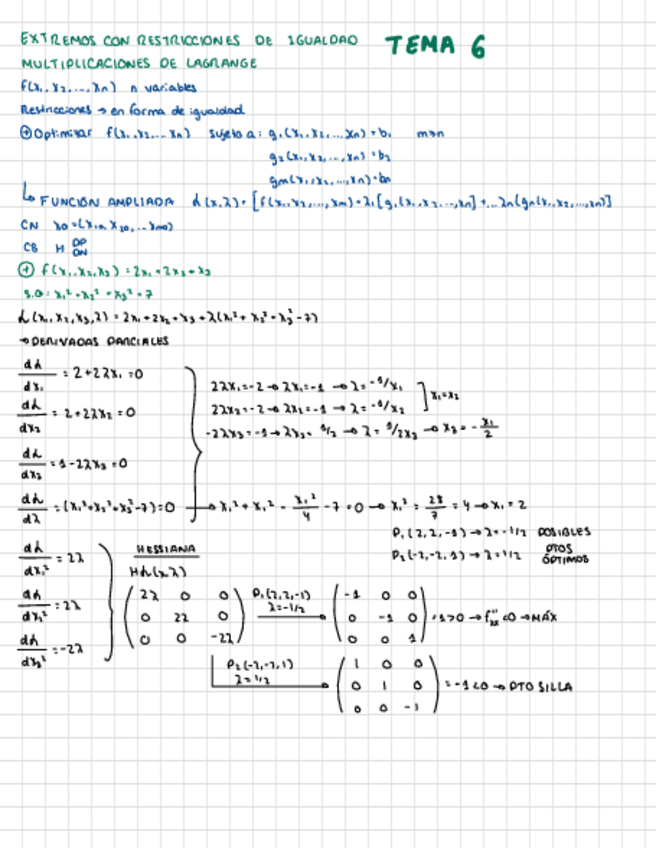 EXTREMOS CON RESTRICCIONES DE IGUALDAD TEMA 6
MULTIPLICACIONES DE LAGRANGE
f(x₁, x₂, ..., xₙ) n variables
Restricciones → en forma de igualdad
Optimizar f(x₁, x₂, ... xₙ) sujeto a: g₁(x₁, x₂, ... xₙ) = b₁ m>n
g₂(x₁, x₂, ..., xₙ) = b₂
gm(x₁, x₂, ..., xₙ) = bn
↳ FUNCIÓN AMPLIADA
CN
CS H DP
DN
f(x₁, x₂, x₃) = 2x₁ + 2x₂ + x₃
DERIVADAS PARCIALES
dL/dx₁ = 2+2λx₁ = 0
dL/dx₂ = 2+2λx₂ = 0
dL/dx₃ = 1-2λx₃ = 0
2λx₁ = -2 → λx₁ = -1 → λ = -1/x₁
2λx₂ = -2 → λx₂ = -1 → λ = -1/x₂
] x₁ = x₂
-2λx₃ = -1 → λx₃ = 1/2 → λ = 1/2x₃ → x₃ = - x₁/2
→ x₁² + x₁² - x₁²/4 - 7 = 0 → x₁² = 28/7 = 4 → x₁ = 2
P₁(2, 2, -1) → λ = -1/2 POSIBLES
P₂(-2, -2, 1) → λ = 1/2 PTOS
ÓPTIMOS
dL/dx₁² = 2λ
dL/dx₂² = 2λ
dL/dx₃² = -2λ
HESSIANA
HL(x, λ)
2λ 0 0
0 2λ 0
0 0 -2λ
P₁(2, 2, -1)
λ = -1/2
-1 0 0
0 -1 0
0 0 1
= 1 > 0 → f''xx < 0 → MÁX
P₂(-2, -2, 1)
λ = 1/2
1 0 0
0 1 0
0 0 -1
= -1 < 0 → PTO SILLA